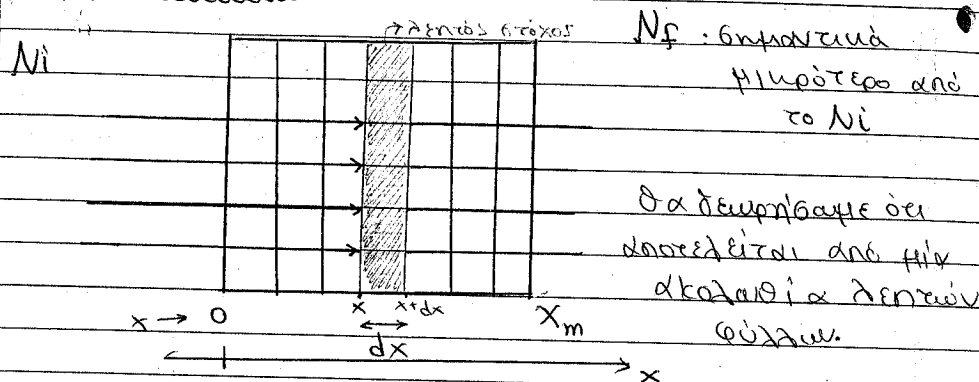 →λεπτός στόχος
Ni
Nf : σημαντικά
μικρότερο από
το Ni
θα θεωρήσαμε ότι
αποτελείται από μία
ακολουθία λεπτών
φύλλων.
x → 0 x x+dx Xm
dx
x